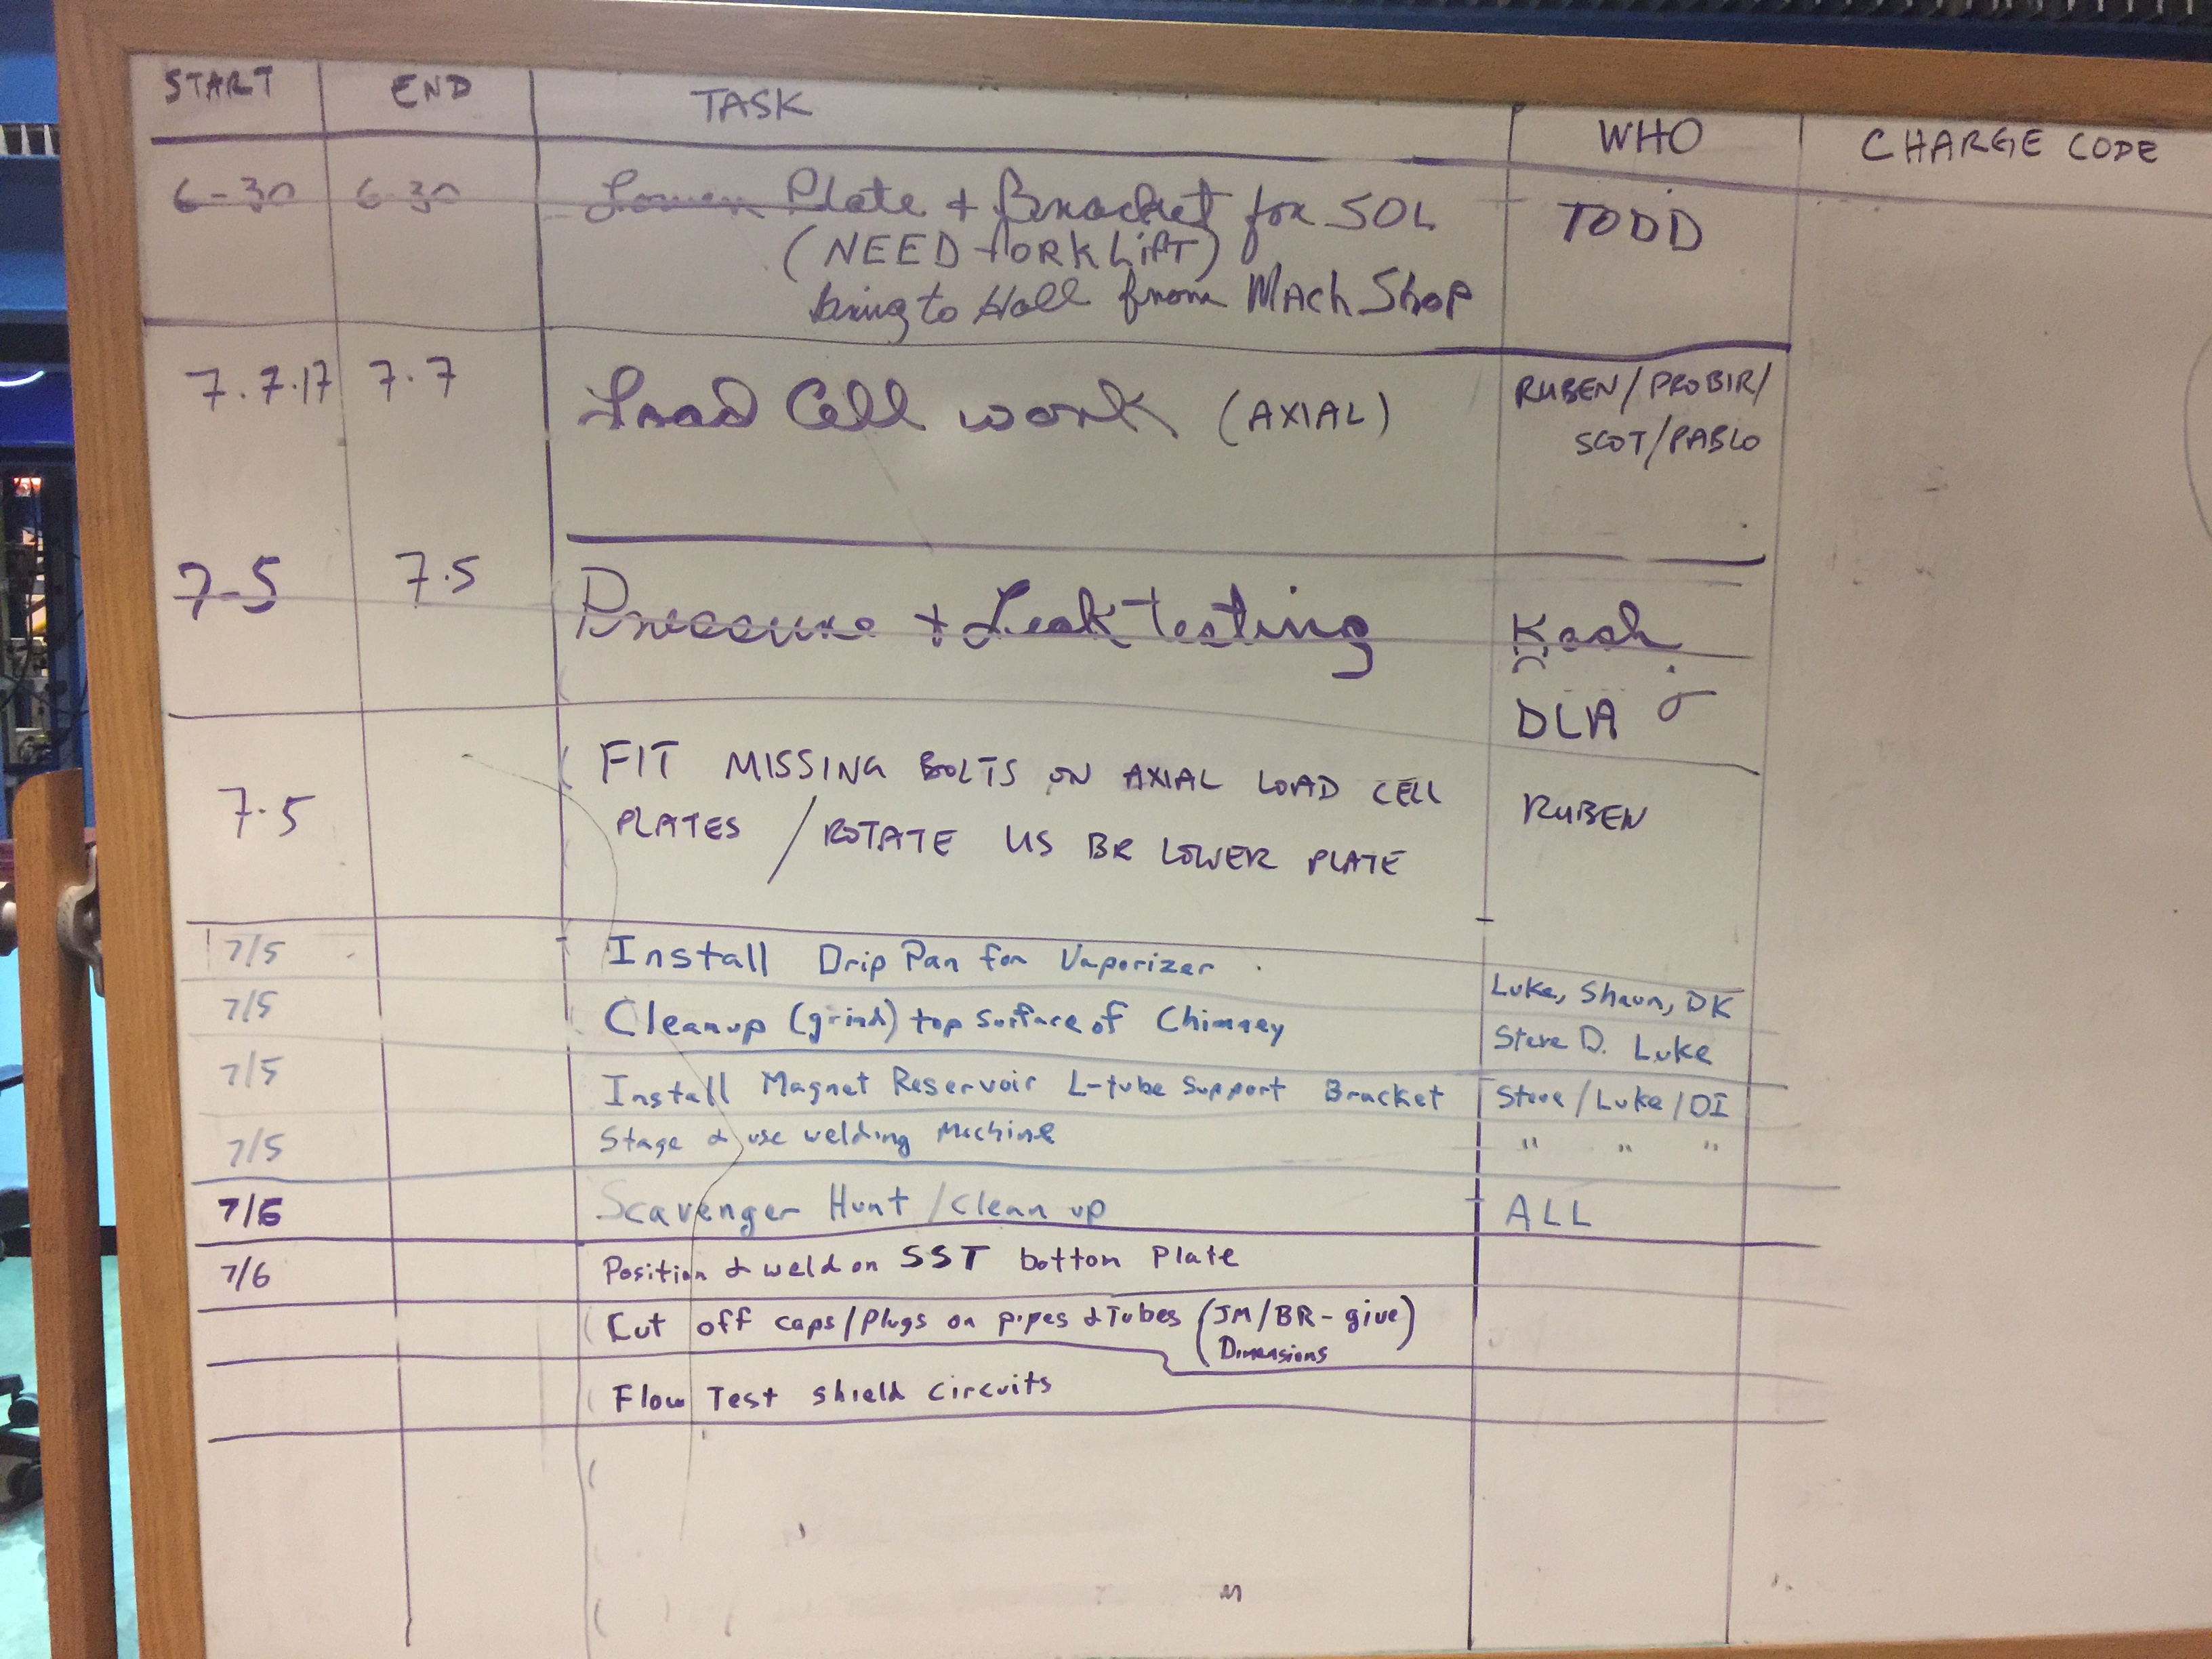 START END TASK WHO CHARGE CODE
6-30 6-30 Lower Plate + Bracket for SOL TODD
(NEED FORKLIFT)
bring to Hall from Mach Shop
7.7.17 7.7 Load Cell work (AXIAL) RUBEN/PROBIR/
SCOT/PABLO
7-5 7.5 Pressure + Leak Testing Kash
DLA
7.5 FIT MISSING BOLTS ON AXIAL LOAD CELL
PLATES / ROTATE US BR LOWER PLATE RUBEN
7/5 Install Drip Pan for Vaporizer Luke, Shaun, DK
7/5 Cleanup (grind) top surface of Chimney Steve D. Luke
7/5 Install Magnet Reservoir L-tube Support Bracket Steve/Luke/DI
7/5 Stage & use welding Machine " " "
7/6 Scavenger Hunt/Clean up ALL
7/6 Position & weld on SST bottom Plate
Cut off caps/Plugs on pipes & Tubes (JM/BR-give)
Dimensions
Flow Test shield circuits